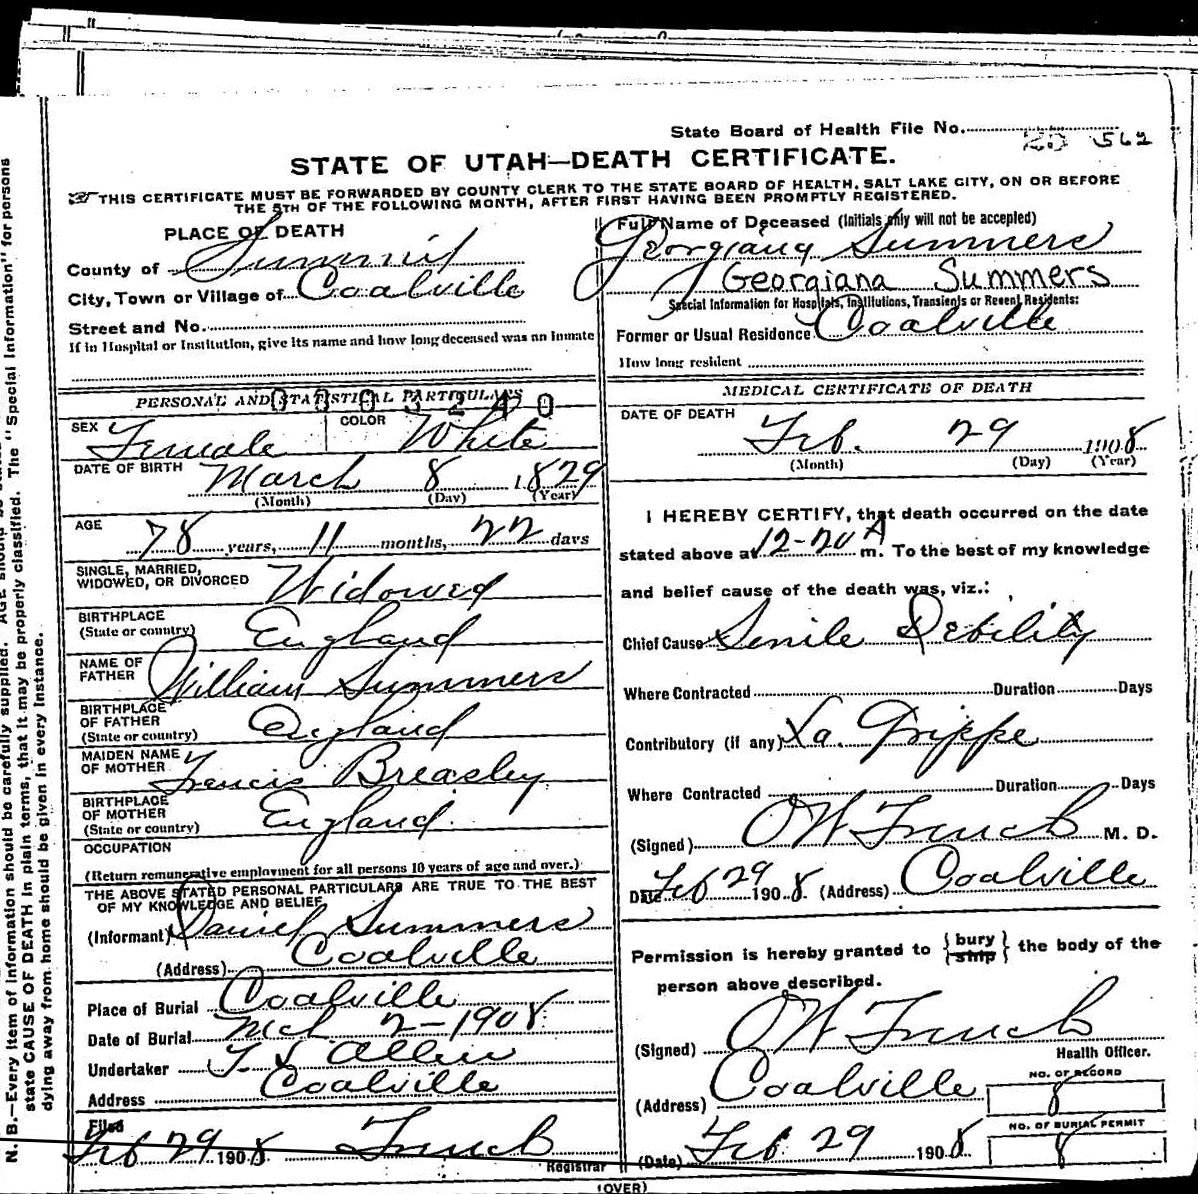 State Board of Health File No. 20 562
STATE OF UTAH—DEATH CERTIFICATE.
THIS CERTIFICATE MUST BE FORWARDED BY COUNTY CLERK TO THE STATE BOARD OF HEALTH, SALT LAKE CITY, ON OR BEFORE
THE 5TH OF THE FOLLOWING MONTH, AFTER FIRST HAVING BEEN PROMPTLY REGISTERED.
PLACE OF DEATH
County of Summit
City, Town or Village of Coalville
Street and No.
If in Hospital or Institution, give its name and how long deceased was an inmate
Full Name of Deceased (Initials only will not be accepted)
Georgiana Summers
Georgiana Summers
Special Information for Hospitals, Institutions, Transients or Recent Residents:
Former or Usual Residence Coalville
How long resident
PERSONAL AND STATISTICAL PARTICULARS
0003240
SEX Female COLOR White
DATE OF BIRTH March 8 1829
(Month) (Day) (Year)
AGE
78 years, 11 months, 22 days
SINGLE, MARRIED,
WIDOWED, OR DIVORCED Widowed
BIRTHPLACE
(State or country) England
NAME OF
FATHER William Summers
BIRTHPLACE
OF FATHER
(State or country) England
MAIDEN NAME
OF MOTHER Francis Breasley
BIRTHPLACE
OF MOTHER
(State or country) England.
OCCUPATION
(Return remunerative employment for all persons 10 years of age and over.)
THE ABOVE STATED PERSONAL PARTICULARS ARE TRUE TO THE BEST
OF MY KNOWLEDGE AND BELIEF
(Informant) Daniel Summers
(Address) Coalville
Place of Burial Coalville
Date of Burial Mch 2-1908
Undertaker Allen
Address Coalville
Filed
Feb 29 1908 French
Registrar
MEDICAL CERTIFICATE OF DEATH
DATE OF DEATH
Feb. 29 1908
(Month) (Day) (Year)
I HEREBY CERTIFY, that death occurred on the date
stated above at 12-20 A m. To the best of my knowledge
and belief cause of the death was, viz.:
Chief Cause Senile Debility
Where Contracted Duration Days
Contributory (if any) La Grippe
Where Contracted Duration Days
(Signed) OW French M. D.
Date Feb 29 1908. (Address) Coalville
Permission is hereby granted to {bury ship} the body of the
person above described.
(Signed) OW French
Health Officer.
(Address) Coalville
NO. OF RECORD
8
NO. OF BURIAL PERMIT
8
(Date) Feb 29 1908
(OVER)
N. B.—Every item of information should be carefully supplied. AGE should be
state CAUSE OF DEATH in plain terms, that it may be properly classified. The "Special Information" for persons
dying away from home should be given in every instance.